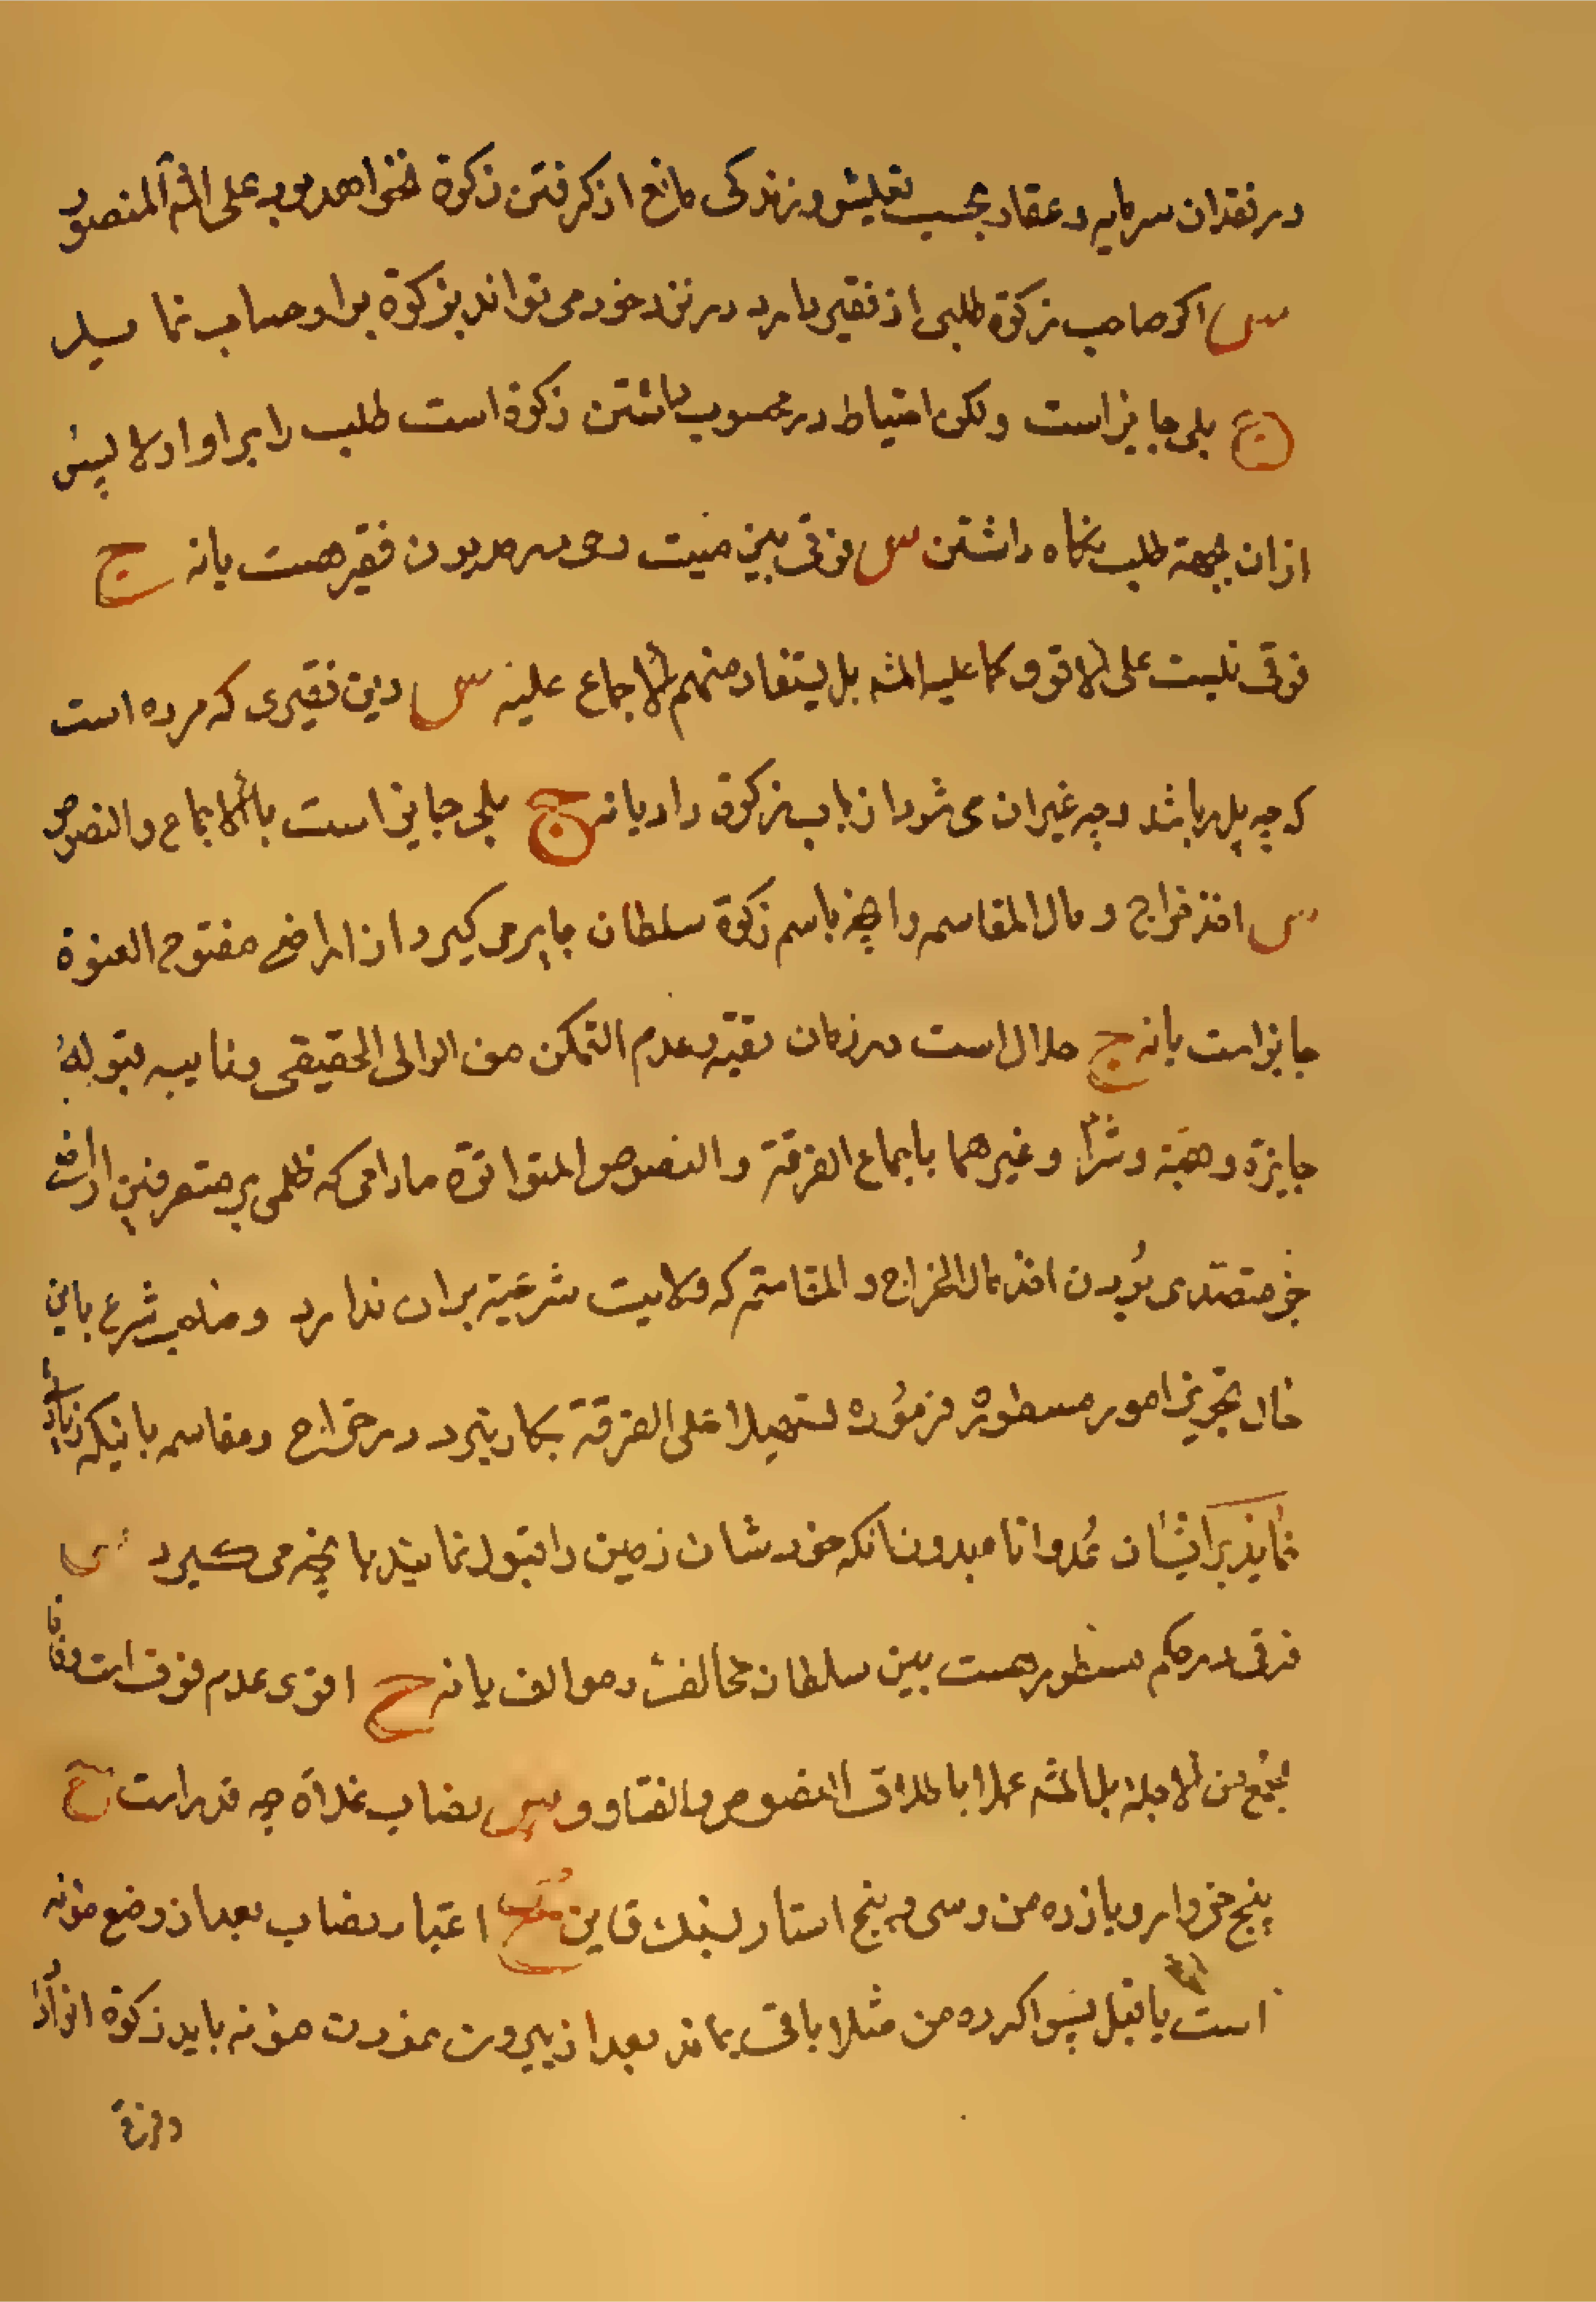 در نقدان سرمایه و عقار بحسب تعلیش و زندکی مانع از کرفتن زکوة نخواهد بود علی المش المنصور
س اکر صاحب زکوة طلبی از فقیر دارد در نزد خود می تواند بزکوة براو حساب نماید
ج بلی جایز است ولکن احتیاط در محسوب داشتن زکوة است طلب را براو اولا پس
ازان بجهة طلب نکاه داشتن س فرقی بین میت و حی در مدیون فقیر هست یا نه ج
فرقی نیست علی الاقوی کما علیه المش بل یستفاد منهم الاجماع علیه س دین فقیری که مرده است
که چه پدر باشد و چه غیر ان می شود از باب زکوة داد یا نه ج بلی جایز است بالاجماع والنصوص
س اخذ خراج و مال المقاسمه وانچه باسم زکوة سلطان جایر می کیرد از اراضی مفتوح العنوة
جایز است یا نه ج حلال است در زمان تقیه وعدم التمکن من الوالی الحقیقی ونایبه بتوله
جایزة وهبة وشراء وغیرهما باجماع الفرقة والنصوص المتواترة مادامی که ظلمی بر متصرفین اراضی
جز متصدی بودن اخذ مال الخراج والمقاسمه که ولایت شرعیة بران ندارد وصاحب شرع باین
حال تجویز امور مسطوره فرموده تسهیلا علی الفرقة بکار نبرد در خراج ومقاسمه باینکه زیاد
نماید برایشان عدوانا بدون انکه خودشان زمین را قبول نمایند بانچه می کیرد س
فرقی در حکم مسطور هست بین سلطان مخالف وموالف یا نه ج اقوی عدم فرق است وفاقا
لجمع من الاجلة بل المش عملا باطلاق النصوص والفتاوی س نصاب غلاة چه قدر است ج
پنج خروار و یازده من وسی و پنج استار بسنک قاین س اعتبار نصاب بعد از وضع مؤنه
است یا قبل پس اکر ده من مثلا باقی بماند بعد از بیرون کردن مؤنه باید زکوة انرا داد